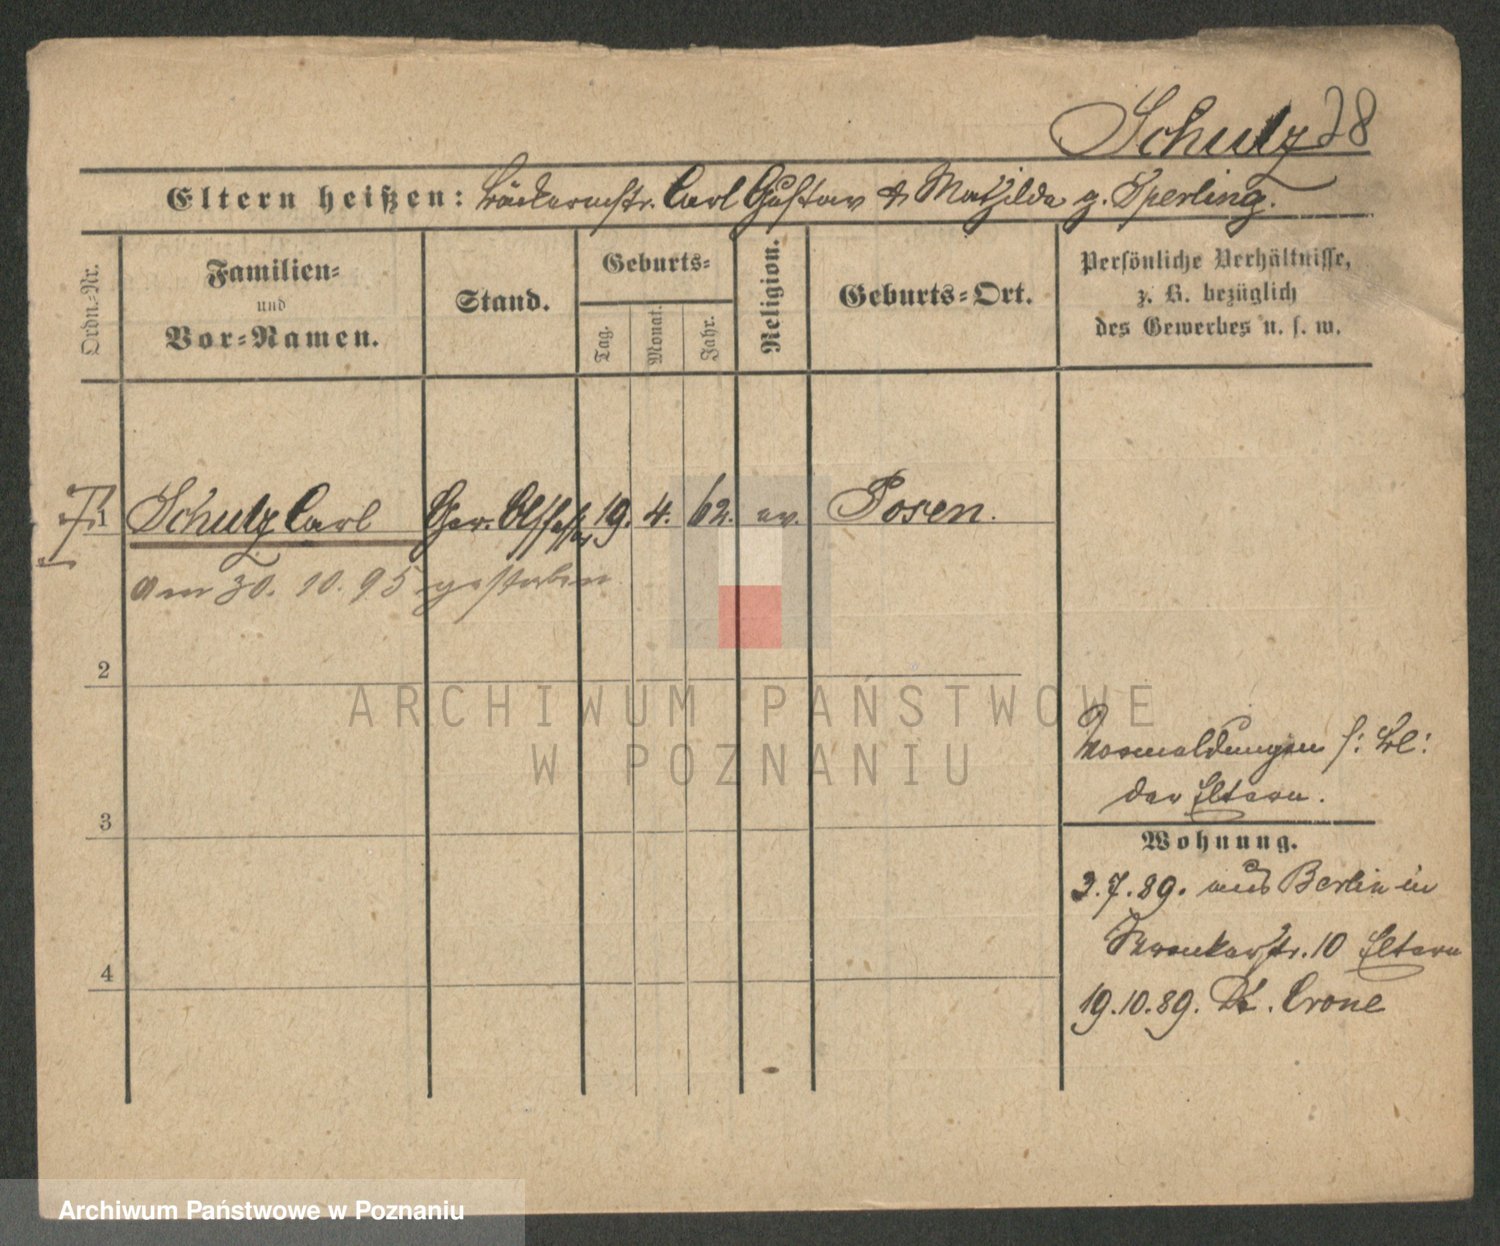 Schulz 28
Eltern heißen: Bäckermstr. Carl Gustav & Mathilde g. Sperling.
Ordn.=Nr.
Familien=
und
Vor=Namen.
Stand.
Geburts=
Tag.
Monat.
Jahr.
Religion.
Geburts=Ort.
Persönliche Verhältnisse,
z. B. bezüglich
des Gewerbes u. s. w.
1 Schulz Carl Ger. Assessor 19. 4. 62. ev. Posen.
am 30. 10. 95 gestorben
2
ARCHIWUM PAŃSTWOWE
W POZNANIU
Vormeldungen s: Bl:
der Eltern.
3
Wohnung.
2.7.89. aus Berlin in
Wronkerstr. 10 Eltern
4
19.10.89. Dt. Crone
Archiwum Państwowe w Poznaniu